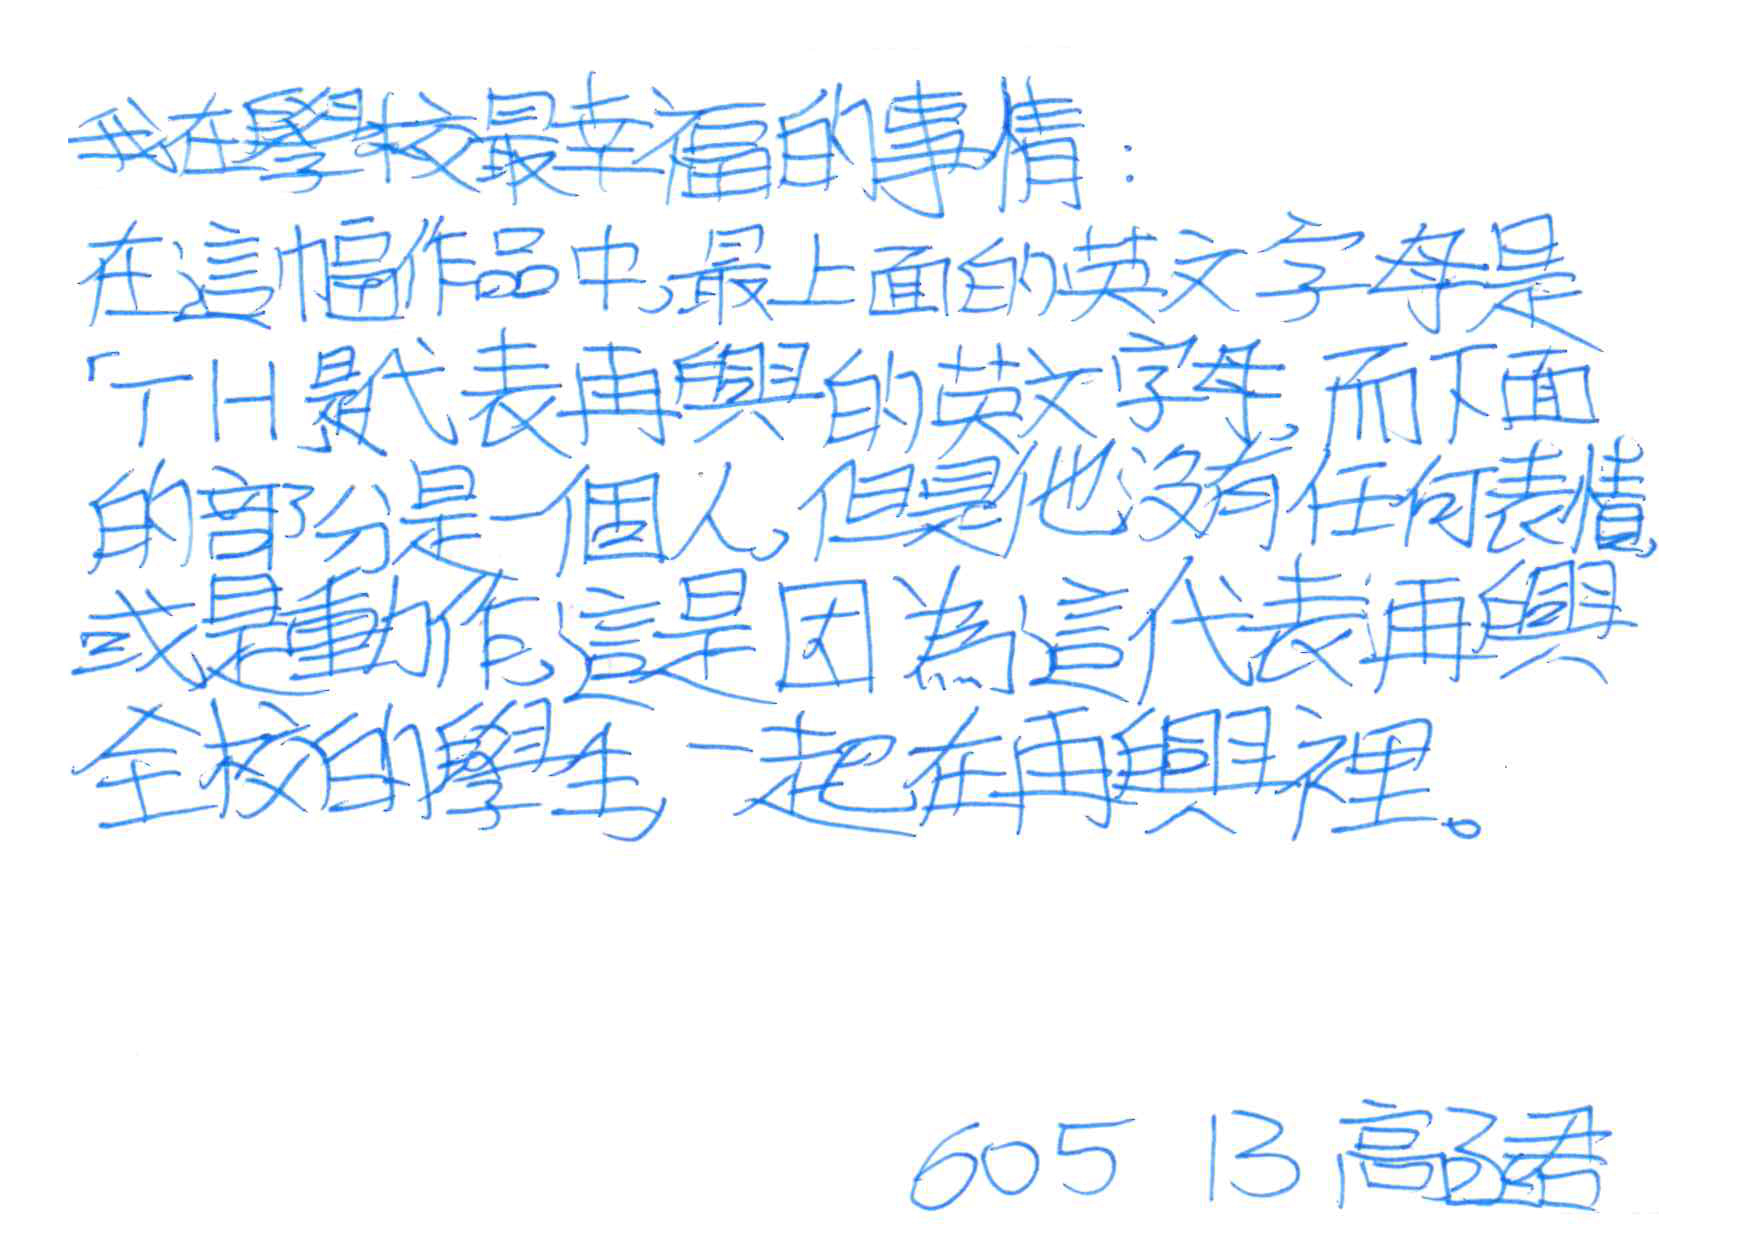 我在學校最幸福的事情：
在這幅作品中,最上面的英文字母是
「TH是代表再興的英文字母,而下面
的部分是一個人,但是他沒有任何表情,
或是動作,這是因為這代表再興
全校的學生,一起在再興裡。
605 13 高君